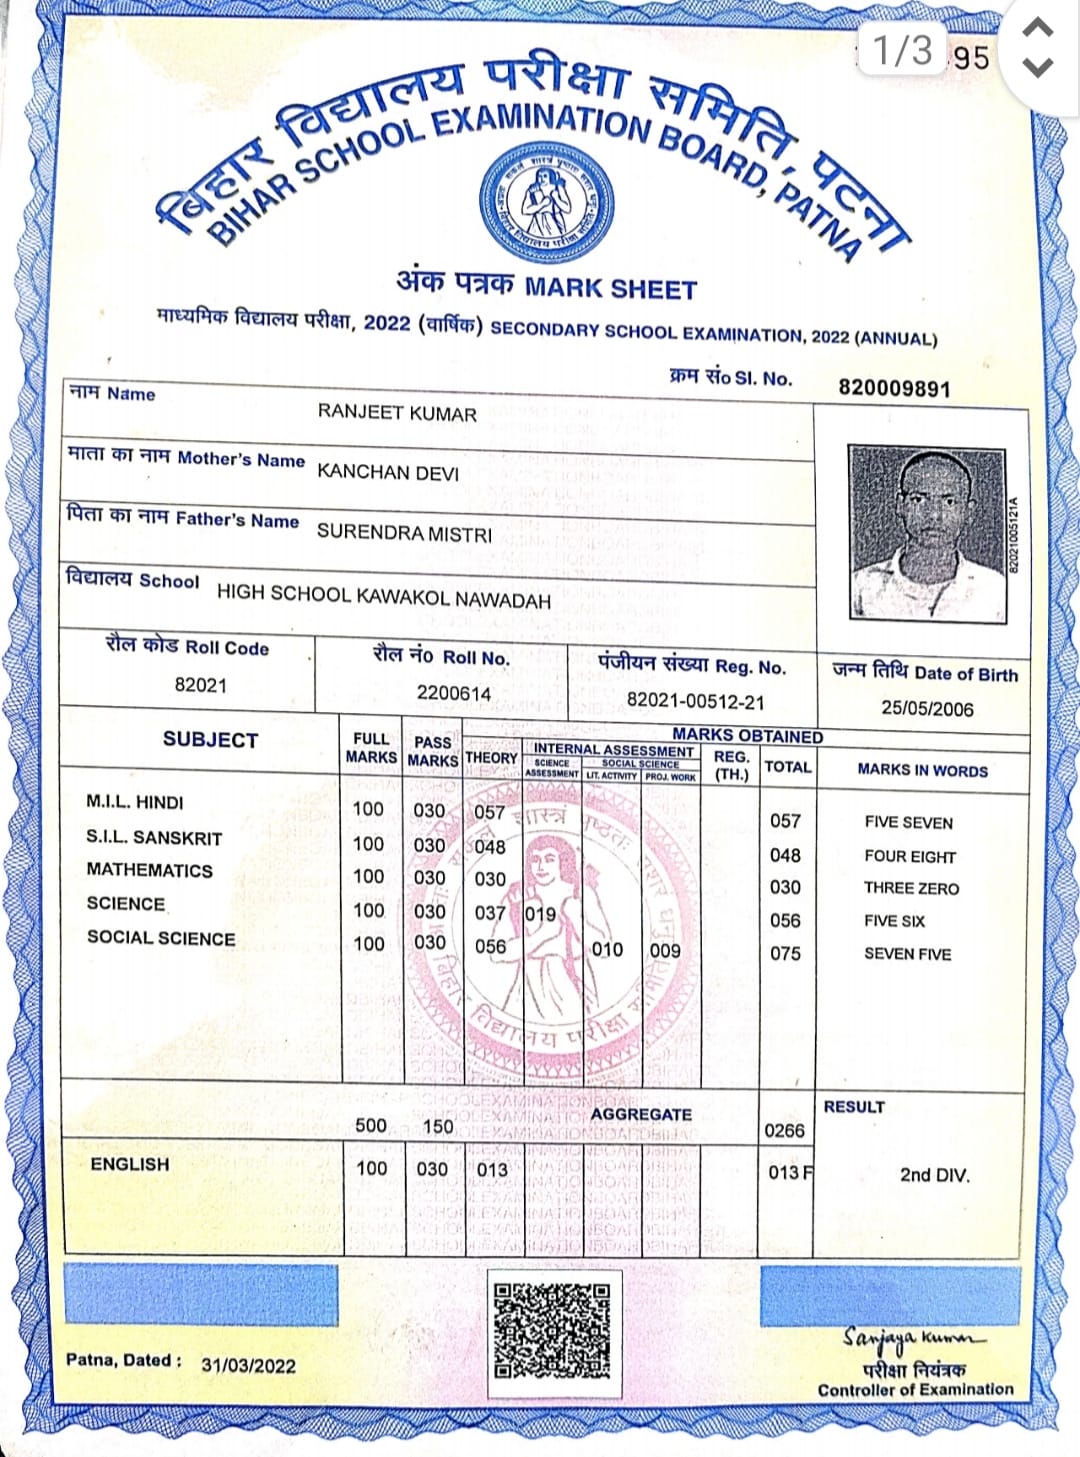 1/3
95
बिहार विद्यालय परीक्षा समिति, पटना
BIHAR SCHOOL EXAMINATION BOARD, PATNA
अंक पत्रक MARK SHEET
माध्यमिक विद्यालय परीक्षा, 2022 (वार्षिक) SECONDARY SCHOOL EXAMINATION, 2022 (ANNUAL)
क्रम सं० Sl. No. 820009891
नाम Name RANJEET KUMAR
माता का नाम Mother's Name KANCHAN DEVI
पिता का नाम Father's Name SURENDRA MISTRI
विद्यालय School HIGH SCHOOL KAWAKOL NAWADAH
82021005121A
रौल कोड Roll Code रौल नं० Roll No. पंजीयन संख्या Reg. No. जन्म तिथि Date of Birth
82021 2200614 82021-00512-21 25/05/2006
SUBJECT FULL MARKS PASS MARKS MARKS OBTAINED
THEORY INTERNAL ASSESSMENT REG. (TH.) TOTAL MARKS IN WORDS
SCIENCE ASSESSMENT SOCIAL SCIENCE
LIT. ACTIVITY PROJ. WORK
M.I.L. HINDI 100 030 057 057 FIVE SEVEN
S.I.L. SANSKRIT 100 030 048 048 FOUR EIGHT
MATHEMATICS 100 030 030 030 THREE ZERO
SCIENCE 100 030 037 019 056 FIVE SIX
SOCIAL SCIENCE 100 030 056 010 009 075 SEVEN FIVE
बिहार विद्यालय परीक्षा समिति
500 150 AGGREGATE 0266 RESULT
ENGLISH 100 030 013 013 F 2nd DIV.
Patna, Dated : 31/03/2022
Sanjaya Kumar
परीक्षा नियंत्रक
Controller of Examination